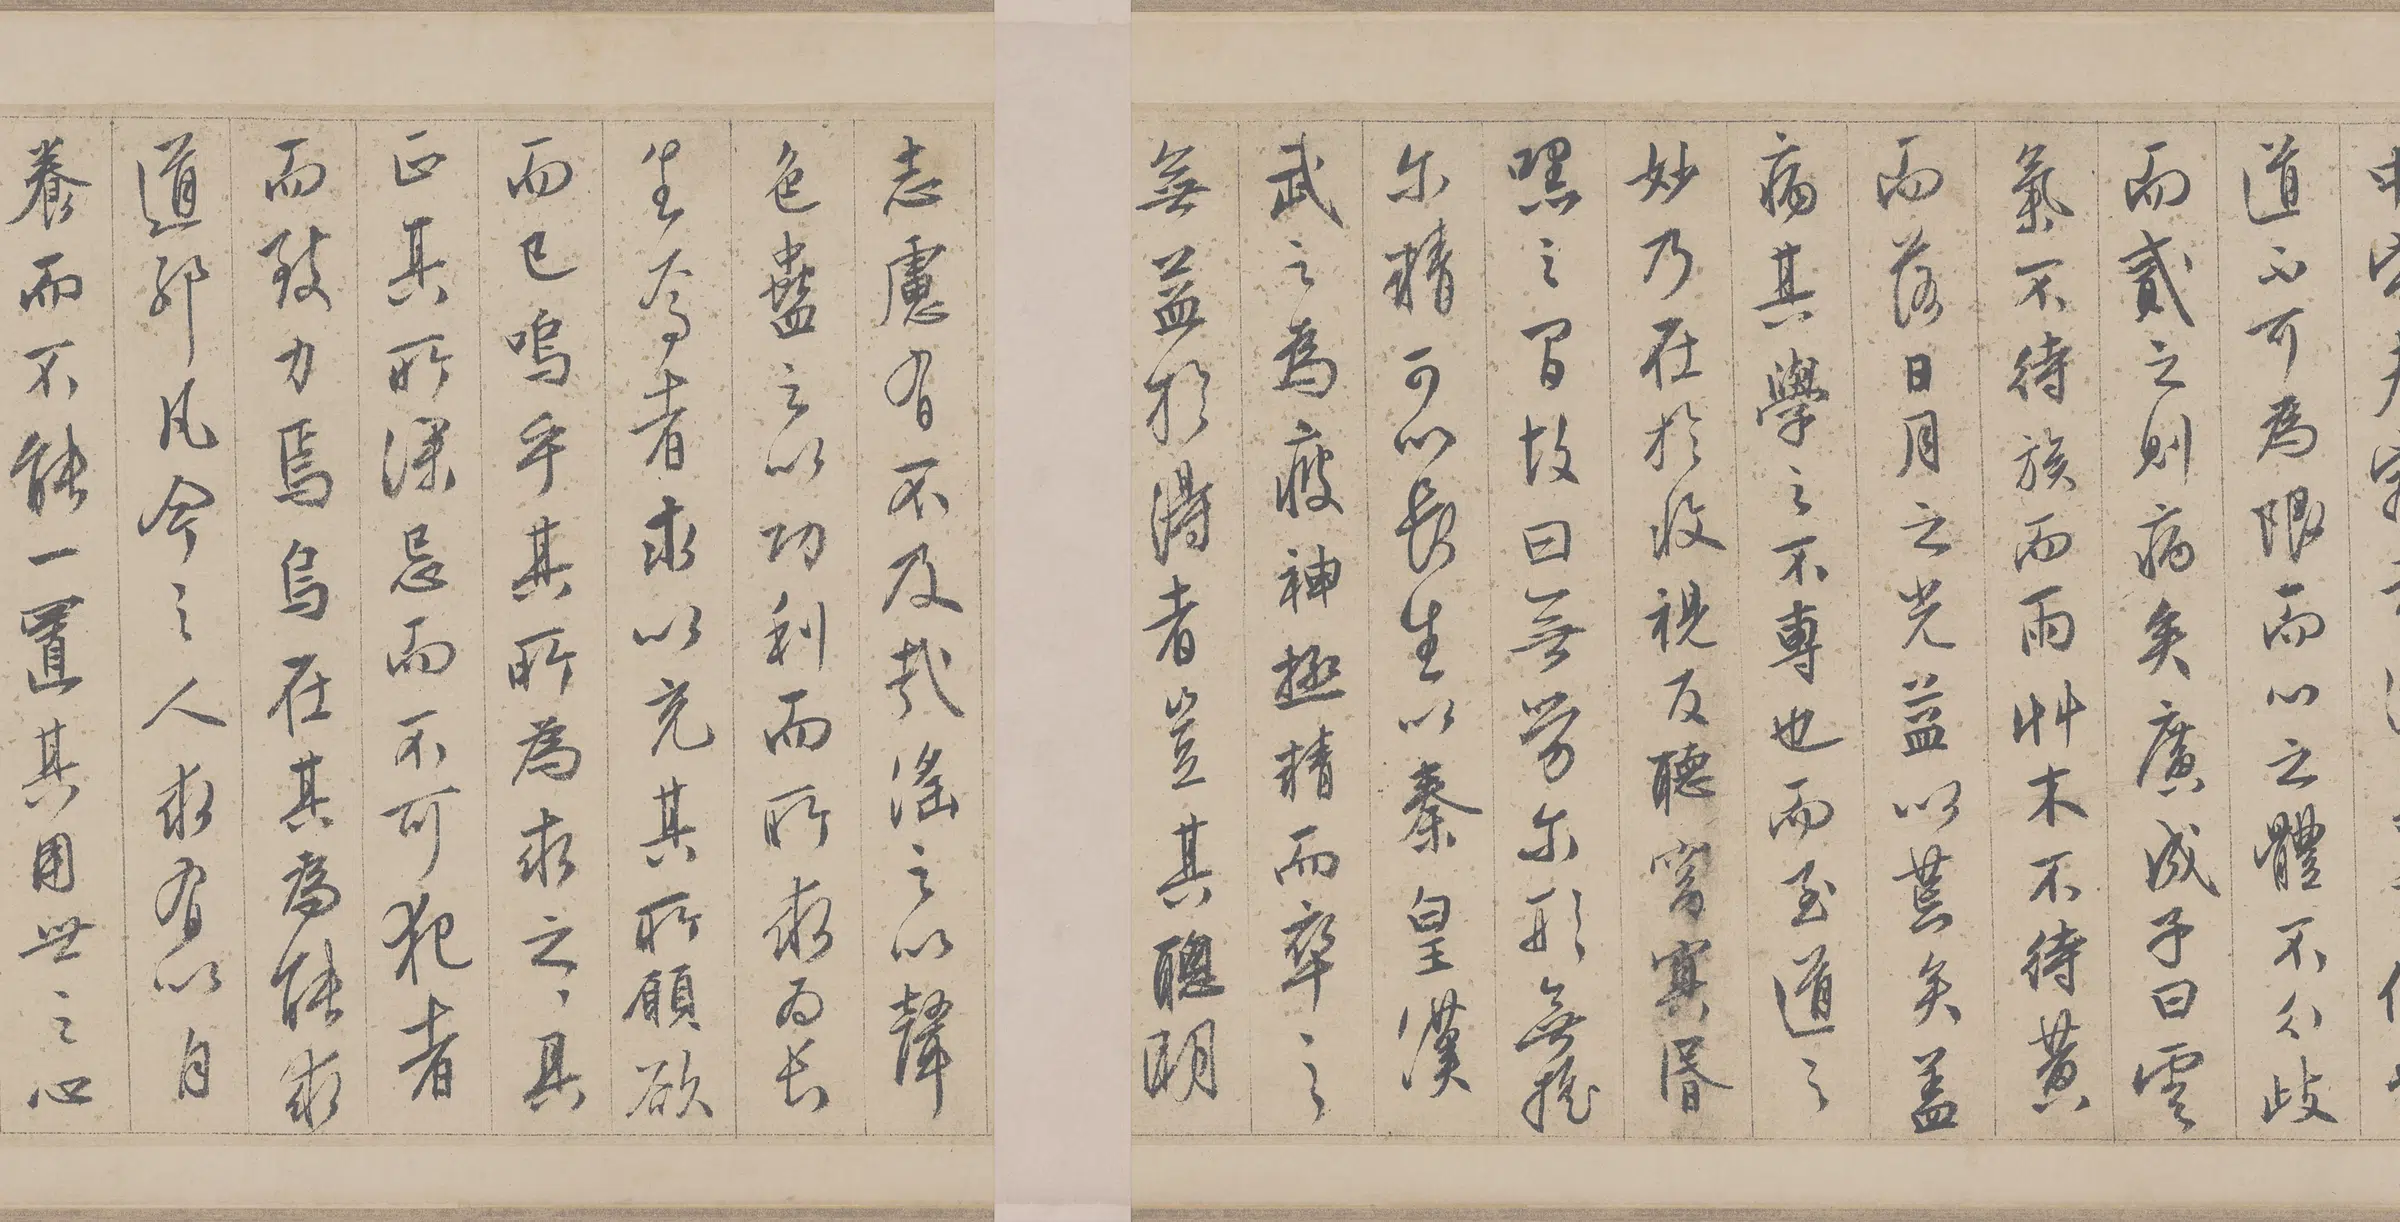 道不可為限而心之體不分歧
而貳之則病矣廣成子曰雲
氣不待族而雨艸木不待黃
而落日月之光益以荒矣蓋
病其學之不專也而至道之
妙乃在於收視反聽窅冥昏
嘿之間故曰無勞尔形無搖
尔精可以長生以秦皇漢
武之為疲神極精而卒之
無益於得者豈其聰明
志慮有不及哉淫之以聲
色蠱之以功利而所求为長
生久焉者求以充其所願欲
而已嗚乎其所為求之之具
正其所深忌而不可犯者
而致力焉烏在其為能求
道邪凡今之人求有以自
養而不能一置其用世之心